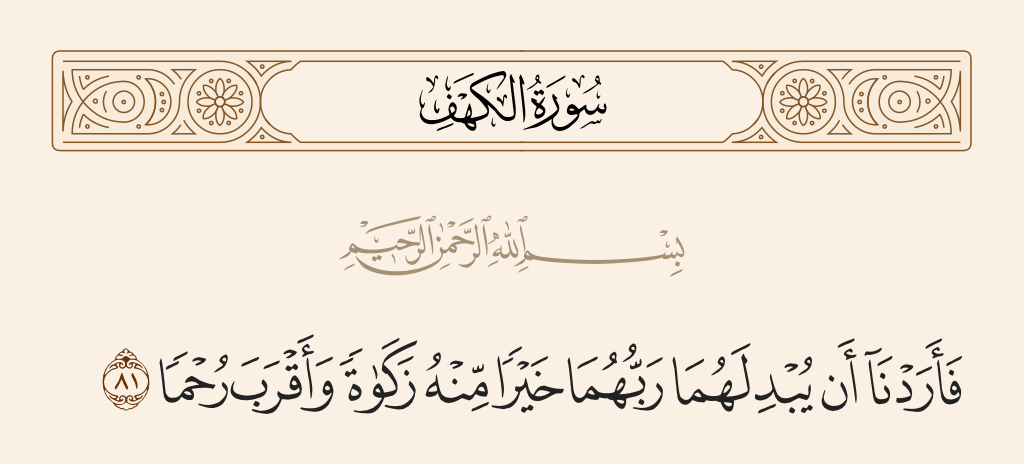 سُورَةُ الكَهۡفِ
بِسۡمِ ٱللَّهِ ٱلرَّحۡمَٰنِ ٱلرَّحِيمِ
فَأَرَدۡنَآ أَن يُبۡدِلَهُمَا رَبُّهُمَا خَيۡرٗا مِّنۡهُ زَكَوٰةٗ وَأَقۡرَبَ رُحۡمٗا ٨١